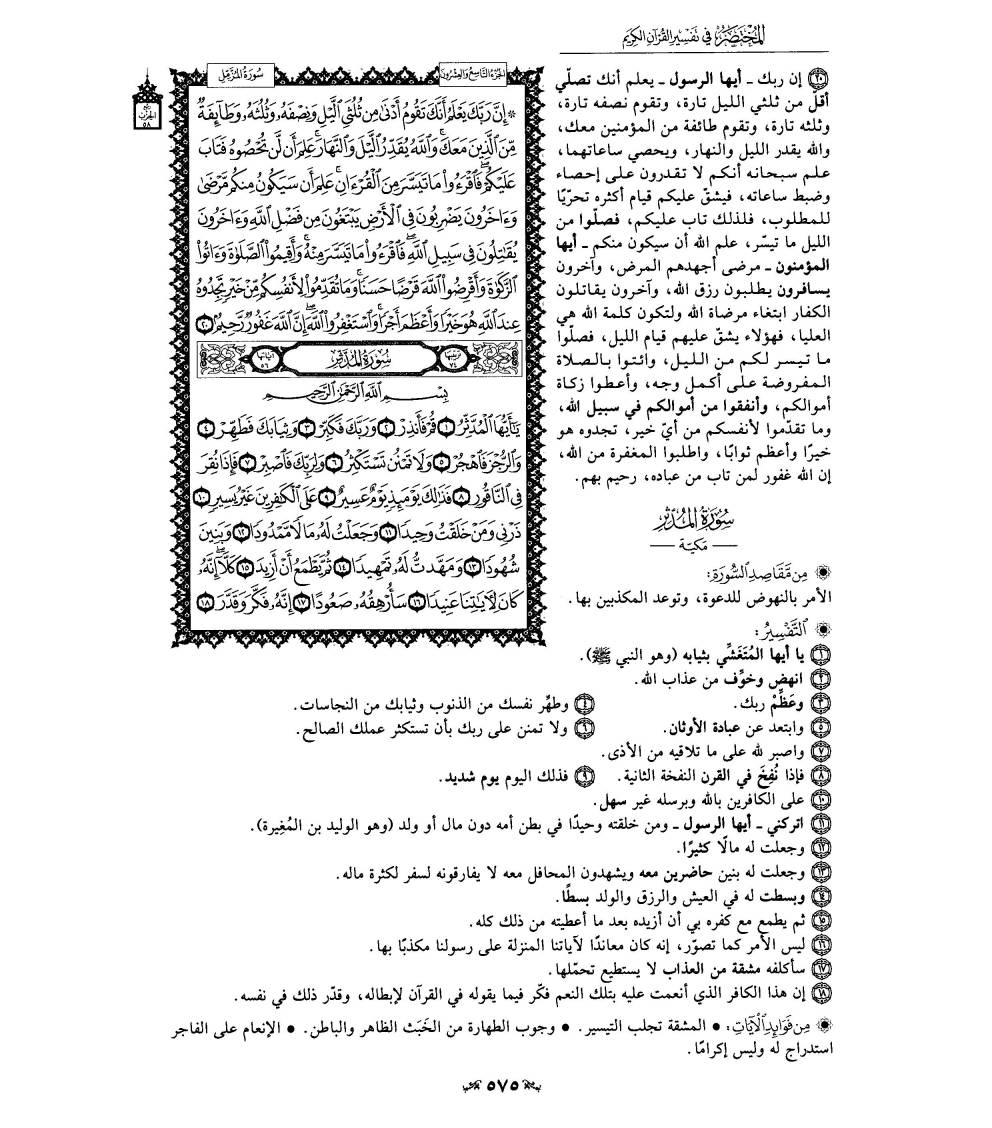 المختصر في تفسير القرآن الكريم
الجزء التاسع والعشرون
سورة المزمل
ربع
الحزب
٥٨
۞ إِنَّ رَبَّكَ يَعْلَمُ أَنَّكَ تَقُومُ أَدْنَىٰ مِن ثُلُثَيِ ٱلَّيْلِ وَنِصْفَهُۥ وَثُلُثَهُۥ وَطَآئِفَةٌ
مِّنَ ٱلَّذِينَ مَعَكَۚ وَٱللَّهُ يُقَدِّرُ ٱلَّيْلَ وَٱلنَّهَارَۚ عَلِمَ أَن لَّن تُحْصُوهُ فَتَابَ
عَلَيْكُمْۖ فَٱقْرَءُوا۟ مَا تَيَسَّرَ مِنَ ٱلْقُرْءَانِۚ عَلِمَ أَن سَيَكُونُ مِنكُم مَّرْضَىٰ
وَءَاخَرُونَ يَضْرِبُونَ فِى ٱلْأَرْضِ يَبْتَغُونَ مِن فَضْلِ ٱللَّهِ وَءَاخَرُونَ
يُقَـٰتِلُونَ فِى سَبِيلِ ٱللَّهِۖ فَٱقْرَءُوا۟ مَا تَيَسَّرَ مِنْهُۚ وَأَقِيمُوا۟ ٱلصَّلَوٰةَ وَءَاتُوا۟
ٱلزَّكَوٰةَ وَأَقْرِضُوا۟ ٱللَّهَ قَرْضًا حَسَنًاۚ وَمَا تُقَدِّمُوا۟ لِأَنفُسِكُم مِّنْ خَيْرٍ تَجِدُوهُ
عِندَ ٱللَّهِ هُوَ خَيْرًا وَأَعْظَمَ أَجْرًاۚ وَٱسْتَغْفِرُوا۟ ٱللَّهَۖ إِنَّ ٱللَّهَ غَفُورٌ رَّحِيمٌۢ ٢٠
ترتيبها ٧٤ سورة المدثر آياتها ٥٦
بِسْمِ ٱللَّهِ ٱلرَّحْمَـٰنِ ٱلرَّحِيمِ
يَـٰٓأَيُّهَا ٱلْمُدَّثِّرُ ١ قُمْ فَأَنذِرْ ٢ وَرَبَّكَ فَكَبِّرْ ٣ وَثِيَابَكَ فَطَهِّرْ ٤
وَٱلرُّجْزَ فَٱهْجُرْ ٥ وَلَا تَمْنُن تَسْتَكْثِرُ ٦ وَلِرَبِّكَ فَٱصْبِرْ ٧ فَإِذَا نُقِرَ
فِى ٱلنَّاقُورِ ٨ فَذَٰلِكَ يَوْمَئِذٍ يَوْمٌ عَسِيرٌ ٩ عَلَى ٱلْكَـٰفِرِينَ غَيْرُ يَسِيرٍ ١٠
ذَرْنِى وَمَنْ خَلَقْتُ وَحِيدًا ١١ وَجَعَلْتُ لَهُۥ مَالًا مَّمْدُودًا ١٢ وَبَنِينَ
شُهُودًا ١٣ وَمَهَّدتُّ لَهُۥ تَمْهِيدًا ١٤ ثُمَّ يَطْمَعُ أَنْ أَزِيدَ ١٥ كَلَّآۖ إِنَّهُۥ
كَانَ لِـَٔايَـٰتِنَا عَنِيدًا ١٦ سَأُرْهِقُهُۥ صَعُودًا ١٧ إِنَّهُۥ فَكَّرَ وَقَدَّرَ ١٨
٢٠ إن ربك ـ أيها الرسول ـ يعلم أنك تصلّي
أقلّ من ثلثي الليل تارة، وتقوم نصفه تارة،
وثلثه تارة، وتقوم طائفة من المؤمنين معك،
والله يقدر الليل والنهار، ويحصي ساعاتهما،
علم سبحانه أنكم لا تقدرون على إحصاء
وضبط ساعاته، فيشقّ عليكم قيام أكثره تحرّيًا
للمطلوب، فلذلك تاب عليكم، فصلّوا من
الليل ما تيسّر، علم الله أن سيكون منكم ـ أيها
المؤمنون ـ مرضى أجهدهم المرض، وآخرون
يسافرون يطلبون رزق الله، وآخرون يقاتلون
الكفار ابتغاء مرضاة الله ولتكون كلمة الله هي
العليا، فهؤلاء يشقّ عليهم قيام الليل، فصلّوا
ما تيسر لكم من الليل، وائتوا بالصلاة
المفروضة على أكمل وجه، وأعطوا زكاة
أموالكم، وأنفقوا من أموالكم في سبيل الله،
وما تقدّموا لأنفسكم من أيّ خير، تجدوه هو
خيرًا وأعظم ثوابًا، واطلبوا المغفرة من الله،
إن الله غفور لمن تاب من عباده، رحيم بهم.
سورة المدثر
— مكية —
من مقاصد السورة:
الأمر بالنهوض للدعوة، وتوعد المكذبين بها.
التفسير:
١ يا أيها المُتَغَشِّي بثيابه (وهو النبي ﷺ).
٢ انهض وخوِّف من عذاب الله.
٣ وعَظِّمْ ربك. ٤ وطهِّر نفسك من الذنوب وثيابك من النجاسات.
٥ وابتعد عن عبادة الأوثان. ٦ ولا تمنن على ربك بأن تستكثر عملك الصالح.
٧ واصبر لله على ما تلاقيه من الأذى.
٨ فإذا نُفِخَ في القرن النفخة الثانية. ٩ فذلك اليوم يوم شديد.
١٠ على الكافرين بالله وبرسله غير سهل.
١١ اتركني ـ أيها الرسول ـ ومن خلقته وحيدًا في بطن أمه دون مال أو ولد (وهو الوليد بن المُغِيرة).
١٢ وجعلت له مالًا كثيرًا.
١٣ وجعلت له بنين حاضرين معه ويشهدون المحافل معه لا يفارقونه لسفر لكثرة ماله.
١٤ وبسطت له في العيش والرزق والولد بسطًا.
١٥ ثم يطمع مع كفره بي أن أزيده بعد ما أعطيته من ذلك كله.
١٦ ليس الأمر كما تصوّر، إنه كان معاندًا لآياتنا المنزلة على رسولنا مكذبًا بها.
١٧ سأكلفه مشقة من العذاب لا يستطيع تحمّلها.
١٨ إن هذا الكافر الذي أنعمت عليه بتلك النعم فكّر فيما يقوله في القرآن لإبطاله، وقدّر ذلك في نفسه.
من فوائد الآيات: • المشقة تجلب التيسير. • وجوب الطهارة من الخَبَث الظاهر والباطن. • الإنعام على الفاجر
استدراج له وليس إكرامًا.
٥٧٥